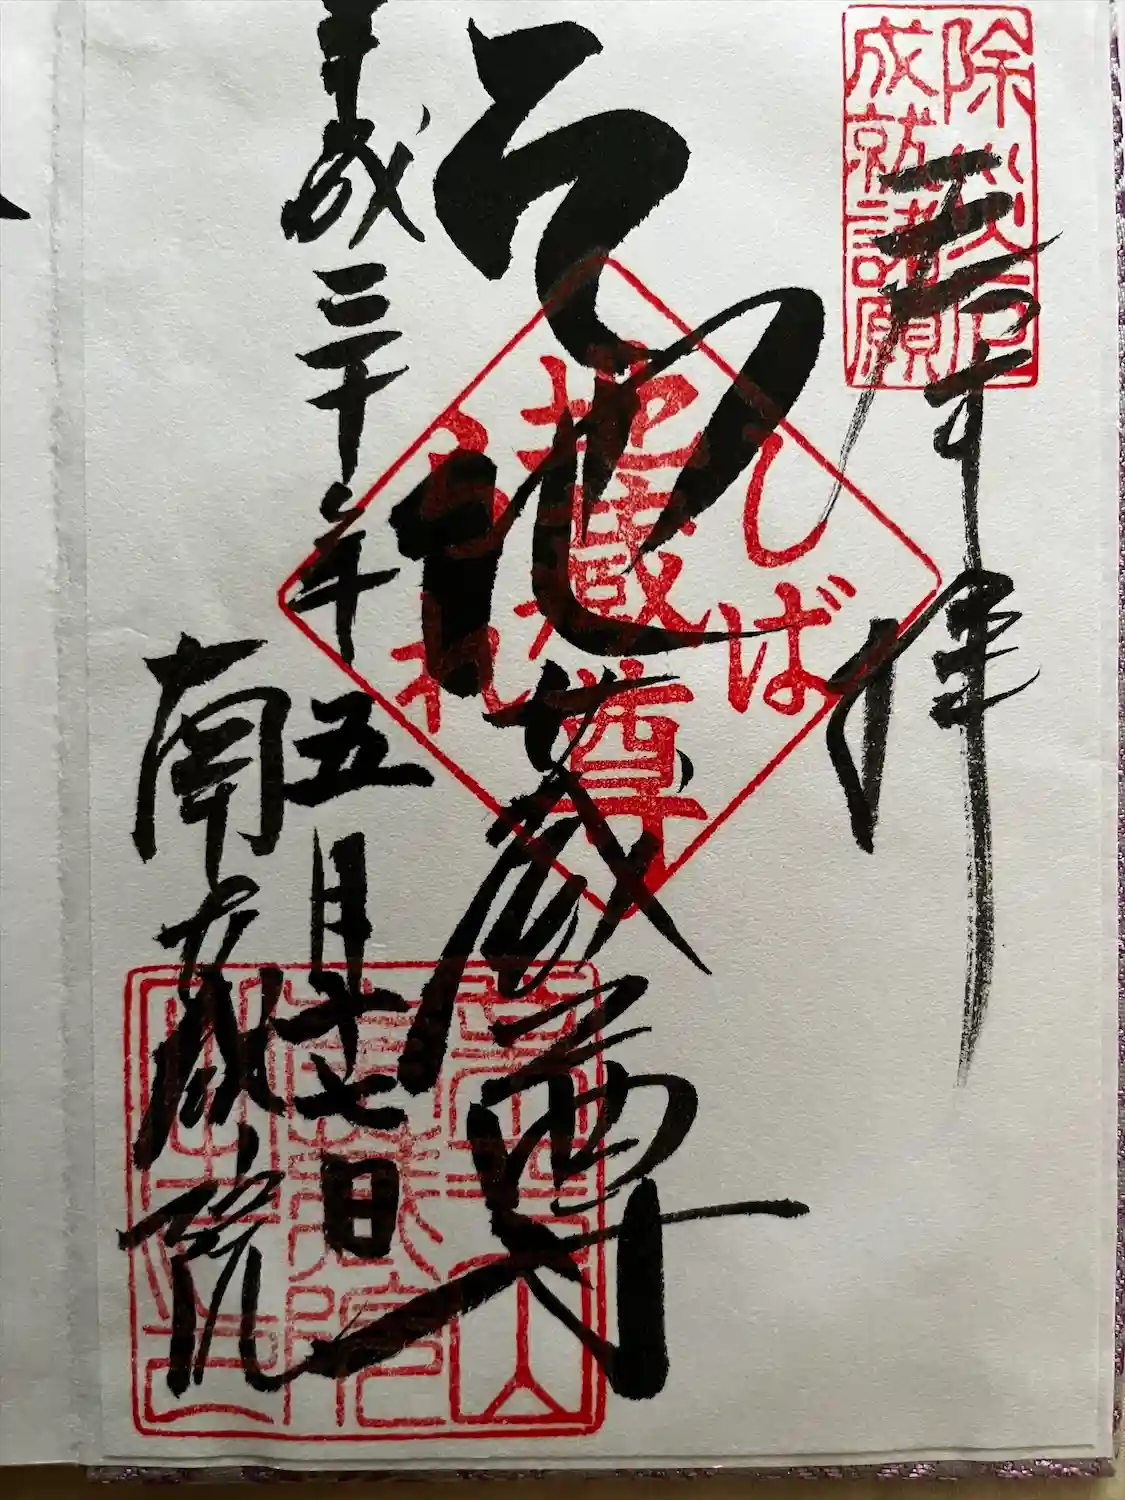 除災厄
成就諸願
奉拝
しば
地蔵尊
られ
地蔵尊
平成三十年五月十七日
南蔵院